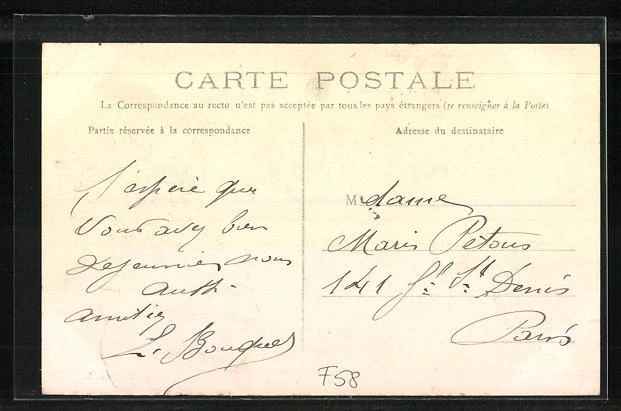 CARTE POSTALE
La Correspondance au recto n'est pas acceptée par tous les pays étrangers (se renseigner à la Poste)
Partie réservée à la correspondance
Adresse du destinataire
J'espère que
vous avez bien
dejeunier nous
aussi
amitiés
L. Bouquet
Madame
Maris Petous
141 St Denis
Paris
F58